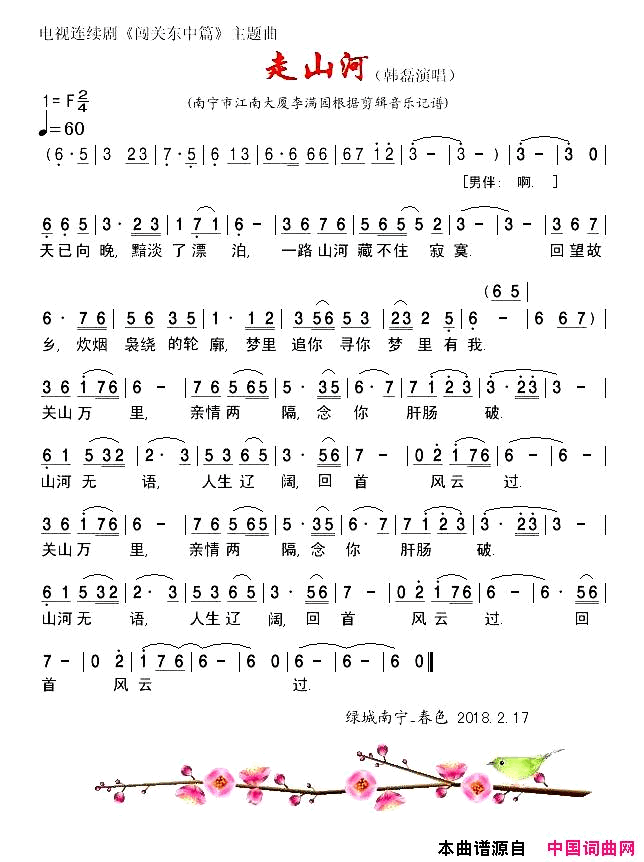 电视连续剧《闯关东中篇》主题曲
走山河（韩磊演唱）
1=F 2/4
(南宁市江南大厦李满园根据剪辑音乐记谱)
♩=60
(6·5|3 23|7·5|6 13|6·6 66|67 12|3 -|3 - )|3 -|3 0
[男伴: 啊. ]
6 6 5|3· 23|1 7 1|6 -|3 6 7 6|5 65 5 2|3 -|3 -|3 6 7|
天已向晚, 黯淡了漂泊, 一路山河藏不住寂寞. 回望故
(6 5
6· 7 6|5 56 3 5|1· 1 2|3 35 6 5 3|23 2 5|6 -|6 6 7)|
乡, 炊烟袅绕的轮廓, 梦里追你寻你梦里有我.
3 6 1 76|6 -|7 6 5 65|5· 35|6· 7|7 1 2 3|3· 23|3 -|
关山万里, 亲情两隔, 念你肝肠破.
6 1 5 32|2 -|5 3 6 5|3· 56|7 -|0 2 1 76|6 -|6 -|
山河无语, 人生辽阔, 回首风云过.
3 6 1 76|6 -|7 6 5 65|5· 35|6· 7|7 1 2 3|3· 23|3 -|
关山万里, 亲情两隔, 念你肝肠破.
6 1 5 32|2 -|5 3 6 5|3· 56|7 -|0 2 1 76|6 -|3· 56|
山河无语, 人生辽阔, 回首风云过. 回
7 -|0 2|1 7 6|6 -|6 0|6 -‖
首风云过.
绿城南宁-春色 2018.2.17
本曲谱源自 中国词曲网